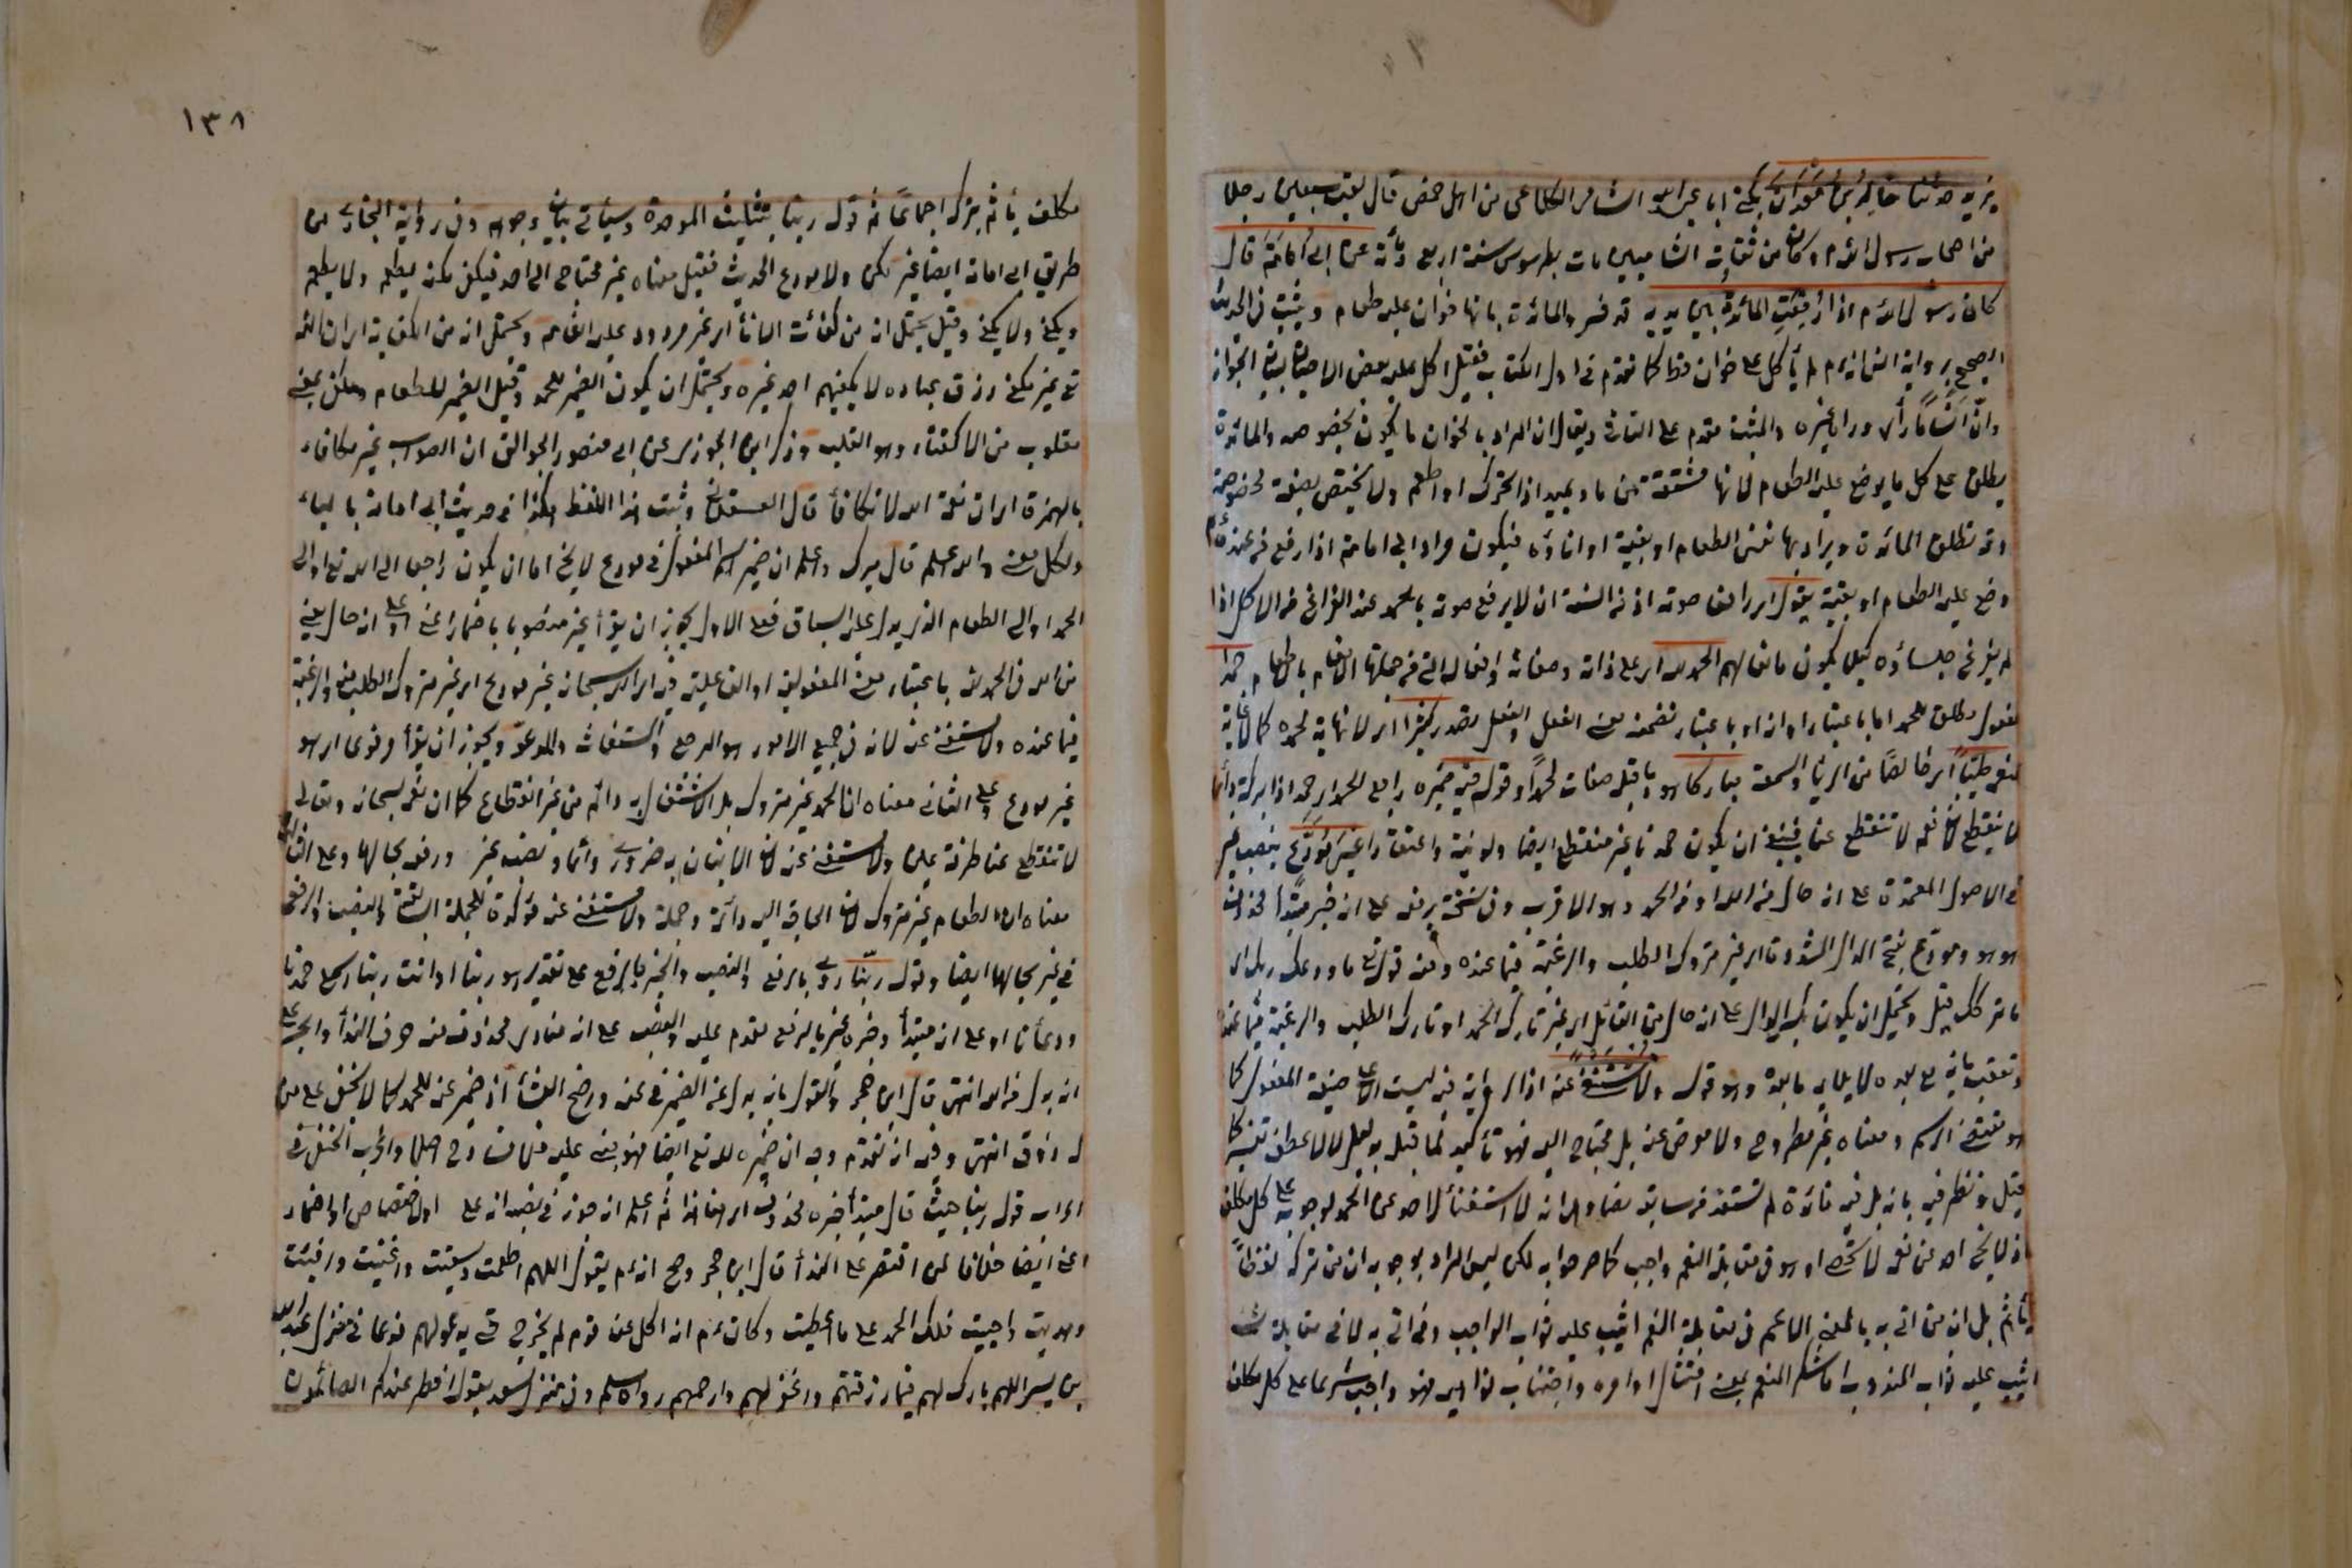 يزيد حدثنا خالد بن معدان يكنى ابا عبد الله الشامى الكلاعى من اهل حمص قال لقيت سبعين رجلا
من اصحاب رسول الله م وكان من ثقات الشاميين مات بطرسوس سنة اربع ومأة عن ابى امامة قال
كان رسول الله م اذا رفعت المائدة بين يديه قد فسر المائدة بانها خوان عليه طعام وثبت فى الحديث
الصحيح برواية انس انه م لم يأكل على خوان قط كما تقدم فى اول الكتاب فقيل اكل عليه بعض الاحيان لبيان الجواز
وان انسا ما رأى وراى غيره والمثبت مقدم على النافى ويقال ان المراد بالخوان ما يكون بخصوصه والمائدة
يطلق على كل ما يوضع عليه الطعام لانها مشتقة من ماد يميد اذا تحرك او اطعم ولا يختص بصفة مخصوصة
وقد تطلق المائدة ويراد بها نفس الطعام او بقيته او اناؤه فيكون مراد ابى امامة اذا رفع من عنده م ما
وضع عليه الطعام او بقيته يقول اى رافعا صوته اذ من السنة ان لا يرفع صوته بالحمد عند الفراغ من الاكل اذا
لم يفرغ جلساؤه كيلا يكون مانعا لهم الحمد لله اى على ذاته وصفاته وافعاله التى من جملتها الانعام بالطعام حمدا
مفعول مطلق للحمد اما باعتبار ذاته او باعتبار تضمنه معنى الفعل او لفعل مقدر كثيرا اى لا نهاية لحمده كما لا غاية
لنعمه طيبا اى خالصا من الريا والسمعة مباركا هو وما قبله صفات لحمدا وقوله فيه ضميره راجع للحمد اى حمدا ذا بركة دائما
لا ينقطع لان نعمه لا تنقطع عنا فينبغى ان يكون حمدنا غير منقطع ايضا ولو نية واعتقادا غير مودع بنصب غير
فى الاصول المعتمدة على انه حال من الله او من الحمد وهو الاقرب وفى نسخة برفعه على انه خبر مبتدأ محذوف
هو هو ومودع بفتح الدال المشددة اى غير متروك الطلب والرغبة فيما عنده ومنه قوله تع ما ودعك ربك اى
ما تركك قيل ويحتمل ان يكون بكسر الدال على انه حال من القائل اى غير تارك الحمد او تارك الطلب والرغبة فيما عنده
وتعقب بانه مع بعده لا يلايم ما بعده وهو قوله ولا مستغنى عنه اذ الرواية فيه ليست الا على صيغة المفعول كما
هو مقتضى الرسم ومعناه غير مطروح ولا معوض عنه بل محتاج اليه فهو تأكيد لما قبله بدليل لا لا عطف تفسير كما
قيل ونظر فيه بانه بل فيه فائدة لم تستفد من سابقه نصا وهى انه لا استغناء لاحد عن الحمد لوجوبه على كل مكلف
اذ لا يخلو احد عن نعمه لا تحصى او هو فى مقابلة النعم واجب كما صرحوا به لكن ليس المراد بوجوبه ان من تركه لفظا
يأثم بل ان من اتى به بالمعنى الاعم فى مقابلة النعم اثيب عليه ثواب الواجب ومن اتى به لا فى مقابلة شئ
اثيب عليه ثواب المندوب اما شكر المنعم بمعنى امتثال اوامره واجتناب نواهيه فهو واجب شرعا على كل مكلف
مكلف يأثم بتركه اجماعا ثم قوله ربنا بتثليث الموحدة وسيأتى بيان وجوهه وفى رواية البخارى من
طريق ابى امامة ايضا غير مكفى ولا مودع الحديث فقيل معناه غير محتاج الى احد فيكفى لكنه يطعم ولا يطعم
ويكفى ولا يكفى وقيل يحتمل انه من كفأت الاناء اى غير مردود عليه انعامه ويحتمل انه من الكفاية اى ان الله
تع غير مكفى رزق عباده لا يكفيهم احد غيره ويحتمل ان يكون الضمير للحمد وقيل الضمير للطعام ومكفى بمعنى
مقلوب من الاكفاء وهو القلب وذكر ابن الجوزى عن ابى منصور الجوالقى ان الصواب غير مكافأ
بالهمزة اى ان نعمة الله لا تكافأ قال العسقلانى وثبت هذا اللفظ هكذا فى حديث ابى امامة بالياء
ولكل معنى والله اعلم قال ميرك واعلم ان ضمير اسم المفعول فى مودع لا يخ اما ان يكون راجعا الى الله تع او الى
الحمد او الى الطعام الذى يدل عليه السياق فعلى الاول يجوز ان يقرأ غير منصوبا باضمار اعنى او على انه حال يعنى
من الله فى الحمد لله باعتبار معنى المفعولية او الفاعلية فيه اى الله سبحانه غير مودع اى غير متروك الطلب منه والرغبة
فيما عنده ولا مستغنى عنه لانه فى جميع الامور هو المرجع والمستغاث والمدعو ويجوز ان يقرأ مرفوعا اى هو
غير مودع وعلى الثانى معناه ان الحمد غير متروك بل الاشتغال به دائم من غير انقطاع كما ان نعمه سبحانه وتعالى
لا تنقطع عنا طرفة عين ولا مستغنى عنه لان الاتيان به ضرورى دائما ونصب غير ورفعه بحالهما وعلى الثالث
معناه ان الطعام غير متروك لان الحاجة اليه دائمة وجملة ولا مستغنى عنه مؤكدة للجملة السابقة والنصب والرفع
فى غير بحالهما ايضا وقوله ربنا روى بالرفع والنصب والجر بالرفع على تقدير هو ربنا او انت ربنا اسمع حمدنا
ودعأنا او على انه مبتدأ وخبره غير بالرفع مقدم عليه والنصب على انه منادى محذوف منه حرف الندأ والجر على
انه بدل من الله انتهى قال ابن حجر والقول بانه بدل من الضمير فى عنه واضح الفساد اذ ضمير عنه للحمد كما لا يخفى على من
له ذوق انتهى وفيه انه تقدم وجه ان ضميره لله تع ايضا فهو يعنى عليه فلا فساد فى اصلا واغرب الحنفى فى
اعراب قوله ربنا حيث قال مبتدأ خبره محذوف اى ربنا هذا ثم اعلم انه جوز فى نصبه انه على الاختصاص او اضمار
اعنى ايضا خلافا لمن اقتصر على الندأ قال ابن حجر وصح انه م يقول اللهم اطعمت وسقيت واغنيت واقنيت
وهديت واحييت فلك الحمد على ما اعطيت وكان م اذا اكل عند قوم لم يخرج حتى يدعو لهم فدعا فى منزل عبد الله
بن بسر اللهم بارك لهم فيما رزقتهم واغفر لهم وارحمهم رواه مسلم وفى منزل سعد بقوله افطر عندكم الصائمون
١٣٨